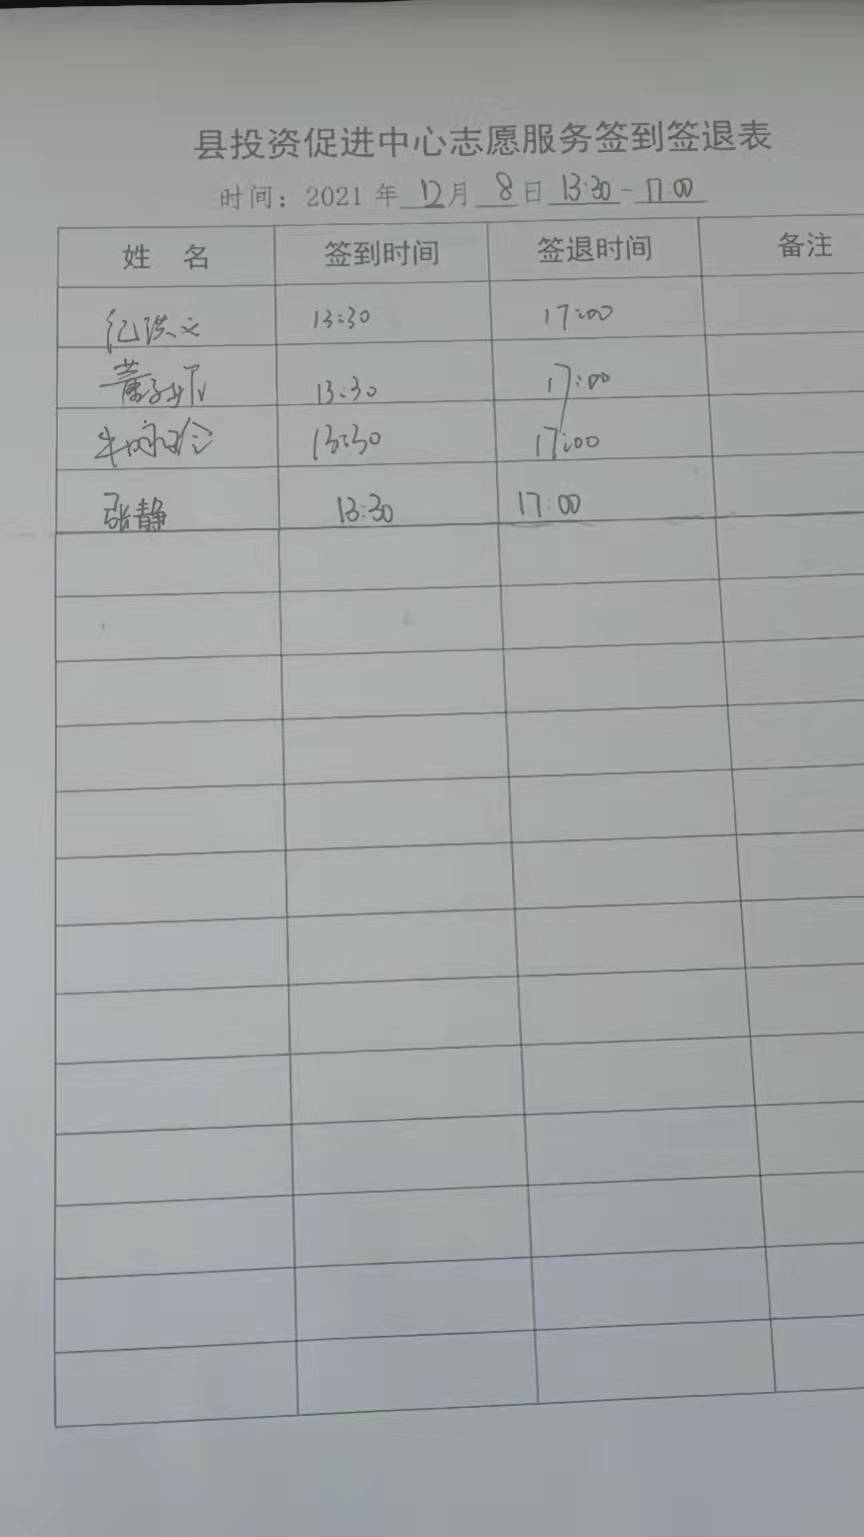 县投资促进中心志愿服务签到签退表
时间：2021 年 12 月 8 日 13:30 - 17:00
姓 名 签到时间 签退时间 备注
纪洪文 13:30 17:00
董 13:30 17:00
牛 13:30 17:00
张静 13:30 17:00